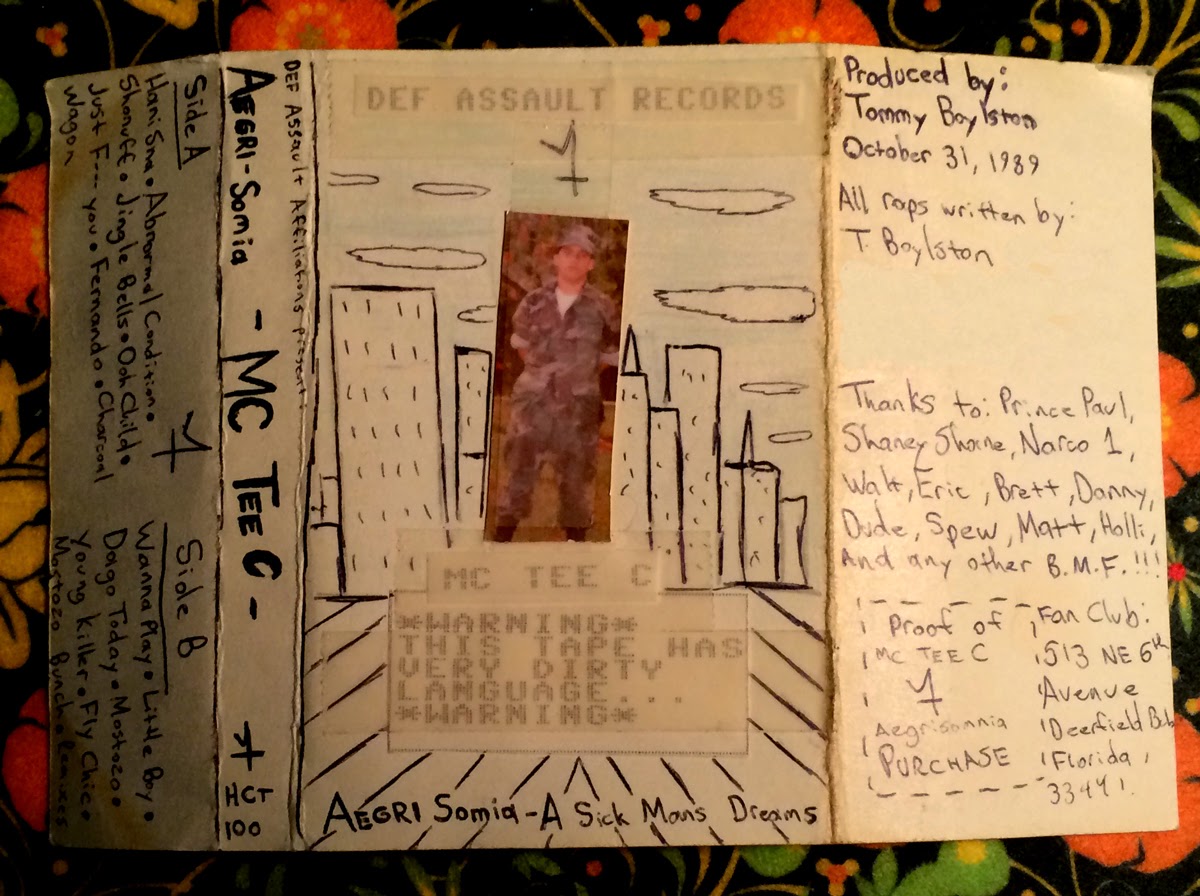 Side A
Hani Sma • Abnormal Condition •
Shonuff • Jingle Bells • Ooh Child •
Just F--- you • Fernando • Charcoal
Wagon
Side B
Wanna Play • Little Boy •
Daigo Today • Mostozo •
Young Killer • Fly Chic •
Mostozo Bunch • Remixes
AEGRI-Somia - MC TEE C -
HCT
100
DEF Assault Affiliations present:
DEF ASSAULT RECORDS
MC TEE C
*WARNING*
THIS TAPE HAS
VERY DIRTY
LANGUAGE...
*WARNING*
AEGRI Somia - A Sick Mans Dreams
Produced by:
Tommy Boylston
October 31, 1989
All raps written by:
T. Boylston
Thanks to: Prince Paul,
Shaney Shane, Narco 1,
Walt, Eric, Brett, Danny,
Dude, Spew, Matt, Holli,
And any other B.M.F.!!!
Proof of
MC TEE C
Aegrisomnia
PURCHASE
Fan Club:
513 NE 6th
Avenue
Deerfield Bch
Florida,
33441.